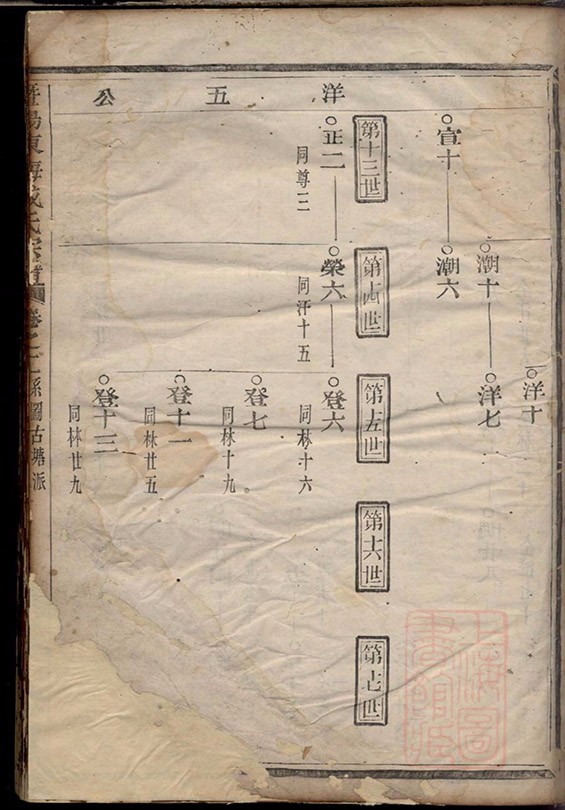 洋十
潮十
洋七
宣十
潮六
第十三世
第十四世
第十五世
第十六世
第十七世
洋五公
正二
同尊三
榮六
同汗十五
登六
同林十六
登七
同林十九
登十一
同林廿五
登十三
同林廿九
暨陽東海
氏宗譜
系圖古塘派
上海圖書館藏